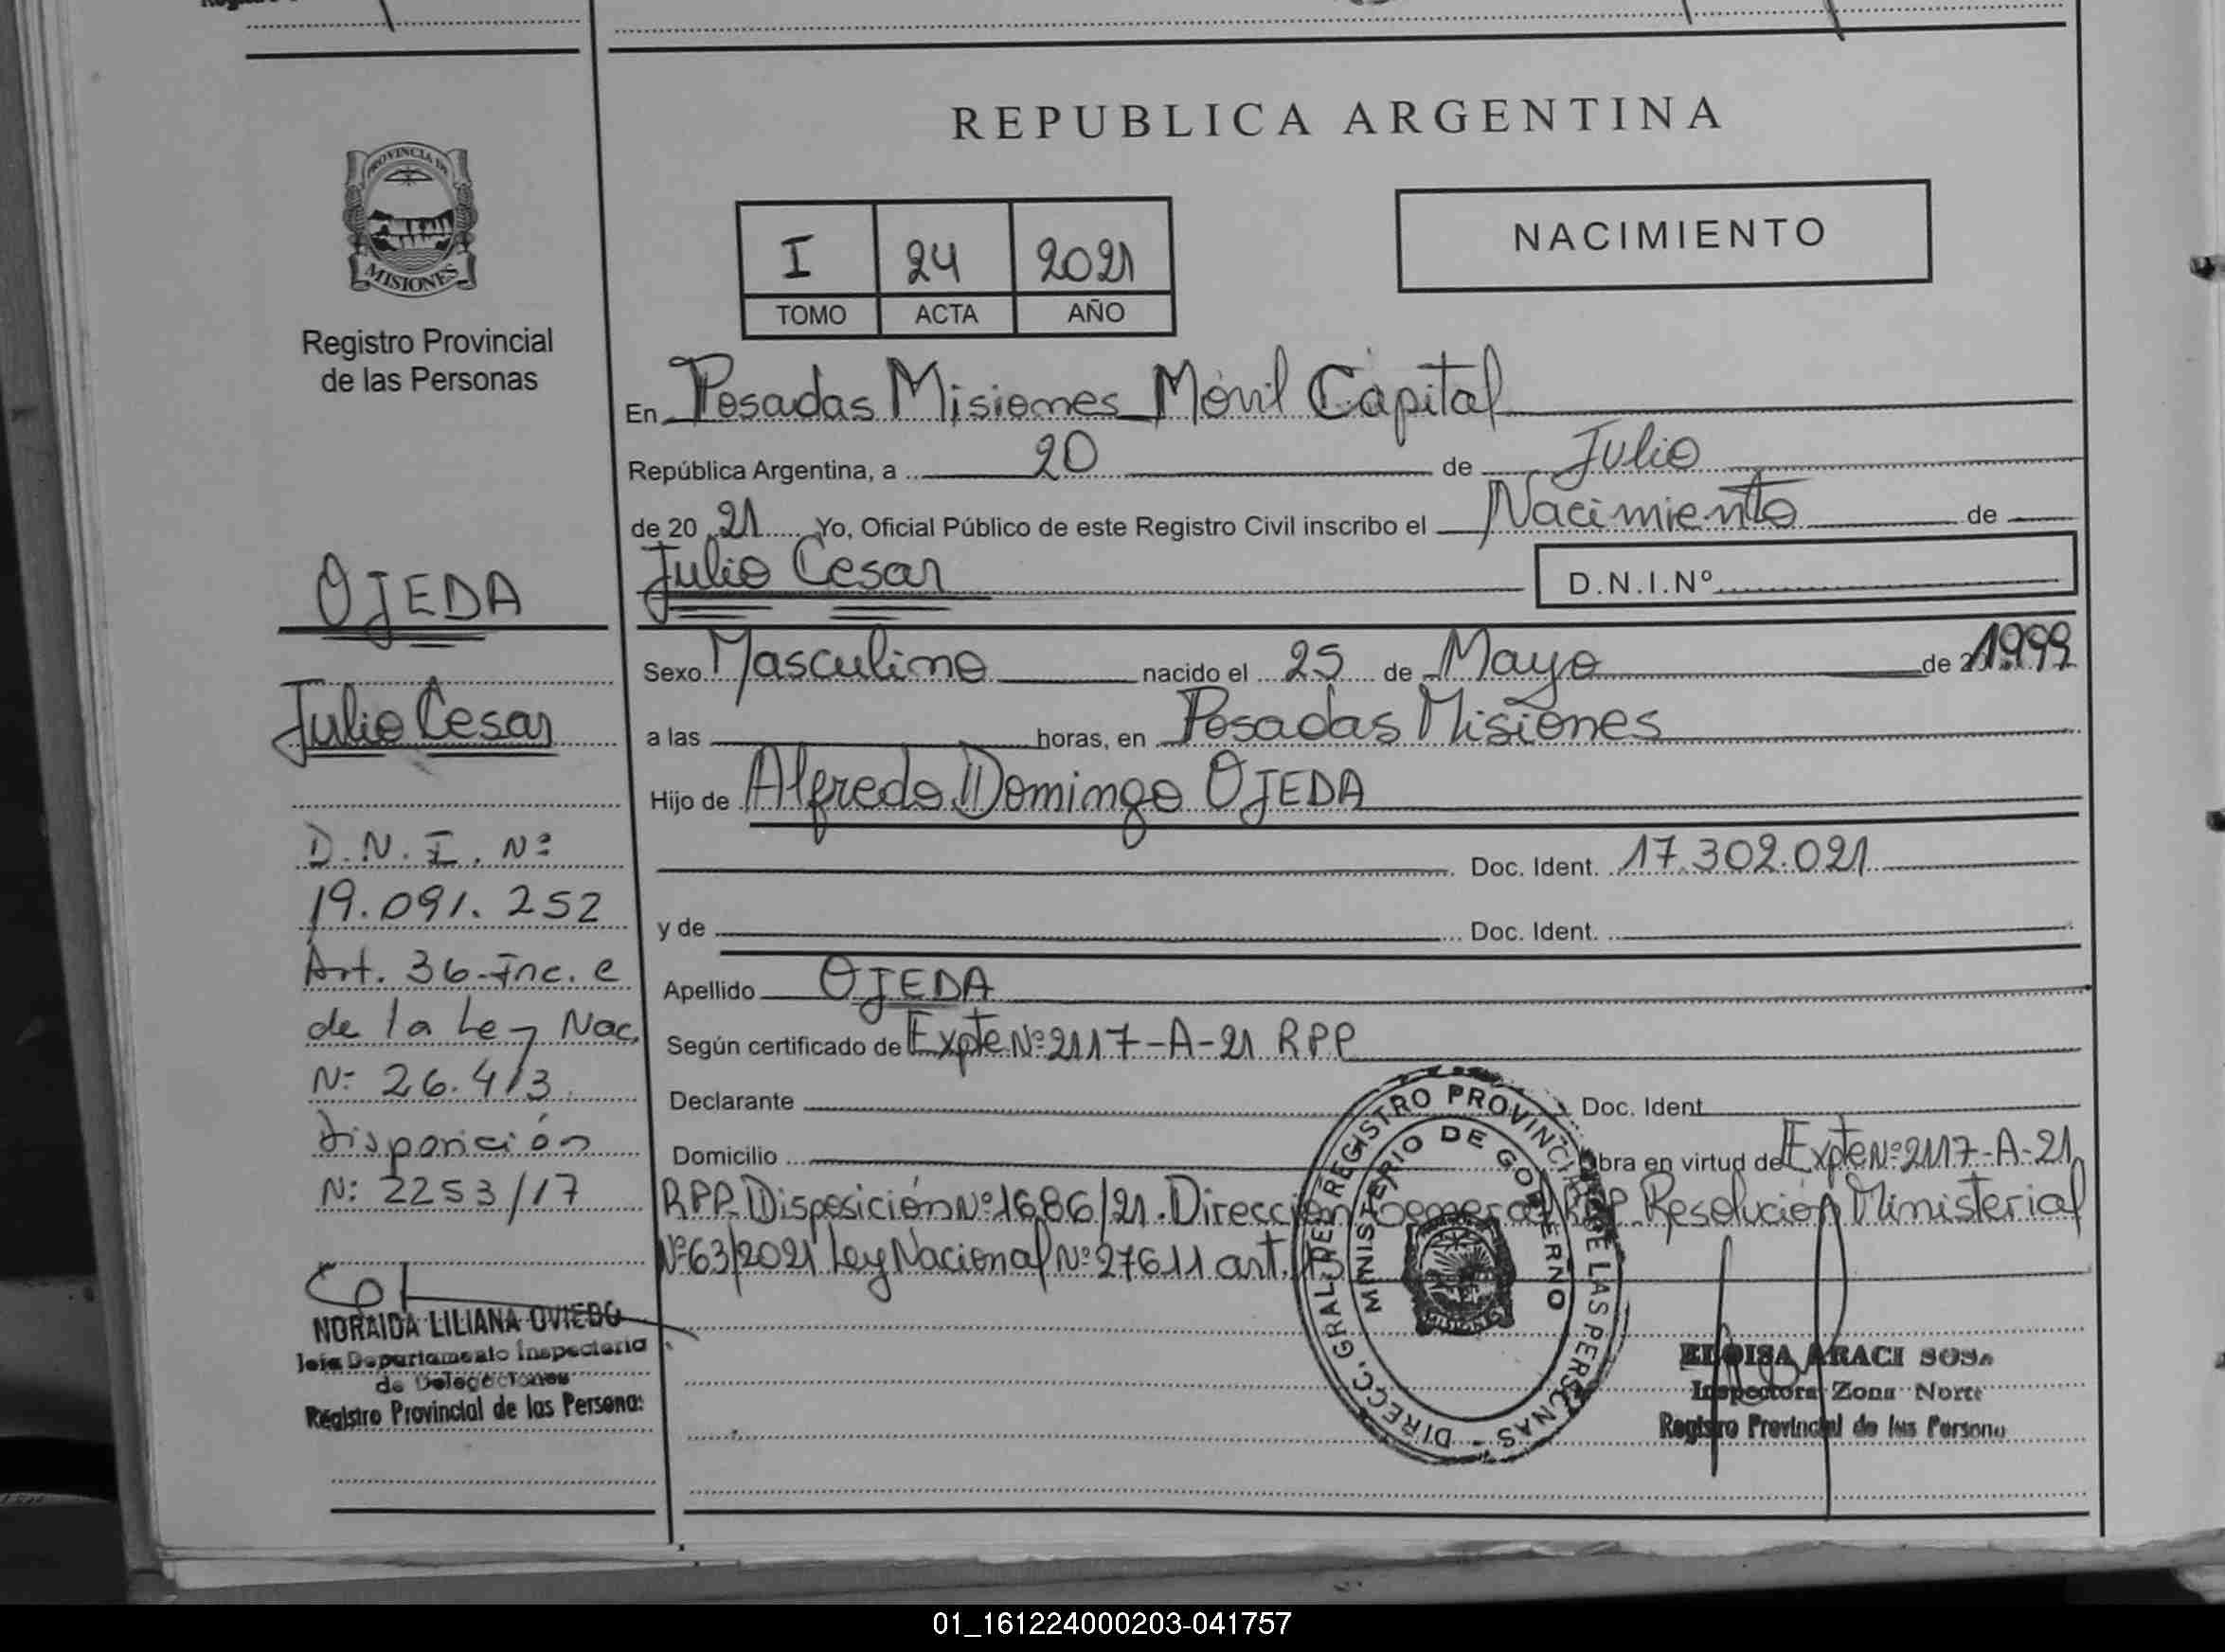 REPUBLICA ARGENTINA
PROVINCIA DE
MISIONES
Registro Provincial
de las Personas
NACIMIENTO
I 24 2021
TOMO ACTA AÑO
En Posadas Misiones Móvil Capital
República Argentina, a 20 de Julio
de 20 21 Yo, Oficial Público de este Registro Civil inscribo el Nacimiento de
Julio Cesar D.N.I.Nº
Sexo Masculino nacido el 25 de Mayo de 1999
a las horas, en Posadas Misiones
Hijo de Alfredo Domingo OJEDA
Doc. Ident. 17.302.021
y de Doc. Ident.
Apellido OJEDA
Según certificado de Expte Nº 2117-A-21 RPP
Declarante Doc. Ident
Domicilio Obra en virtud de Expte Nº 2117-A-21
RPP. Disposición Nº 1686/21. Dirección General RPP. Resolución Ministerial
Nº 63/2021 Ley Nacional Nº 27611 art.
OJEDA
Julio Cesar
D.N.I. Nº
19.091.252
Art. 36-Inc. e
de la Ley Nac.
Nº 26.413
Disposición
Nº 2253/17
NORAIDA LILIANA OVIEDO
Jefa Departamento Inspectoria
de Delegaciones
Registro Provincial de las Personas
DIRECC. GRAL. DEL REGISTRO PROVINCIAL DE LAS PERSONAS
MINISTERIO DE GOBIERNO
MISIONES
ELOISA ARACI SOSA
Inspectora Zona Norte
Registro Provincial de las Persona
01_161224000203-041757